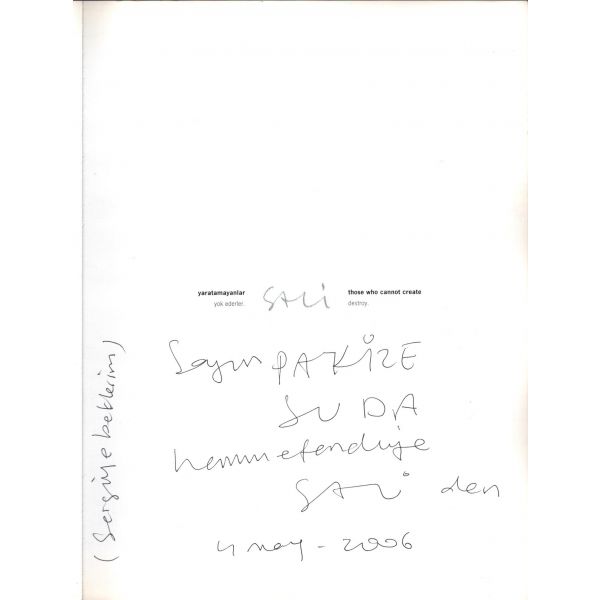 yaratamayanlar
yok ederler.
SALİ
those who cannot create
destroy.
Sayın PAKİZE
SUDA
hanımefendiye
SALİ den
4 may - 2006
(Sergiye beklerim)